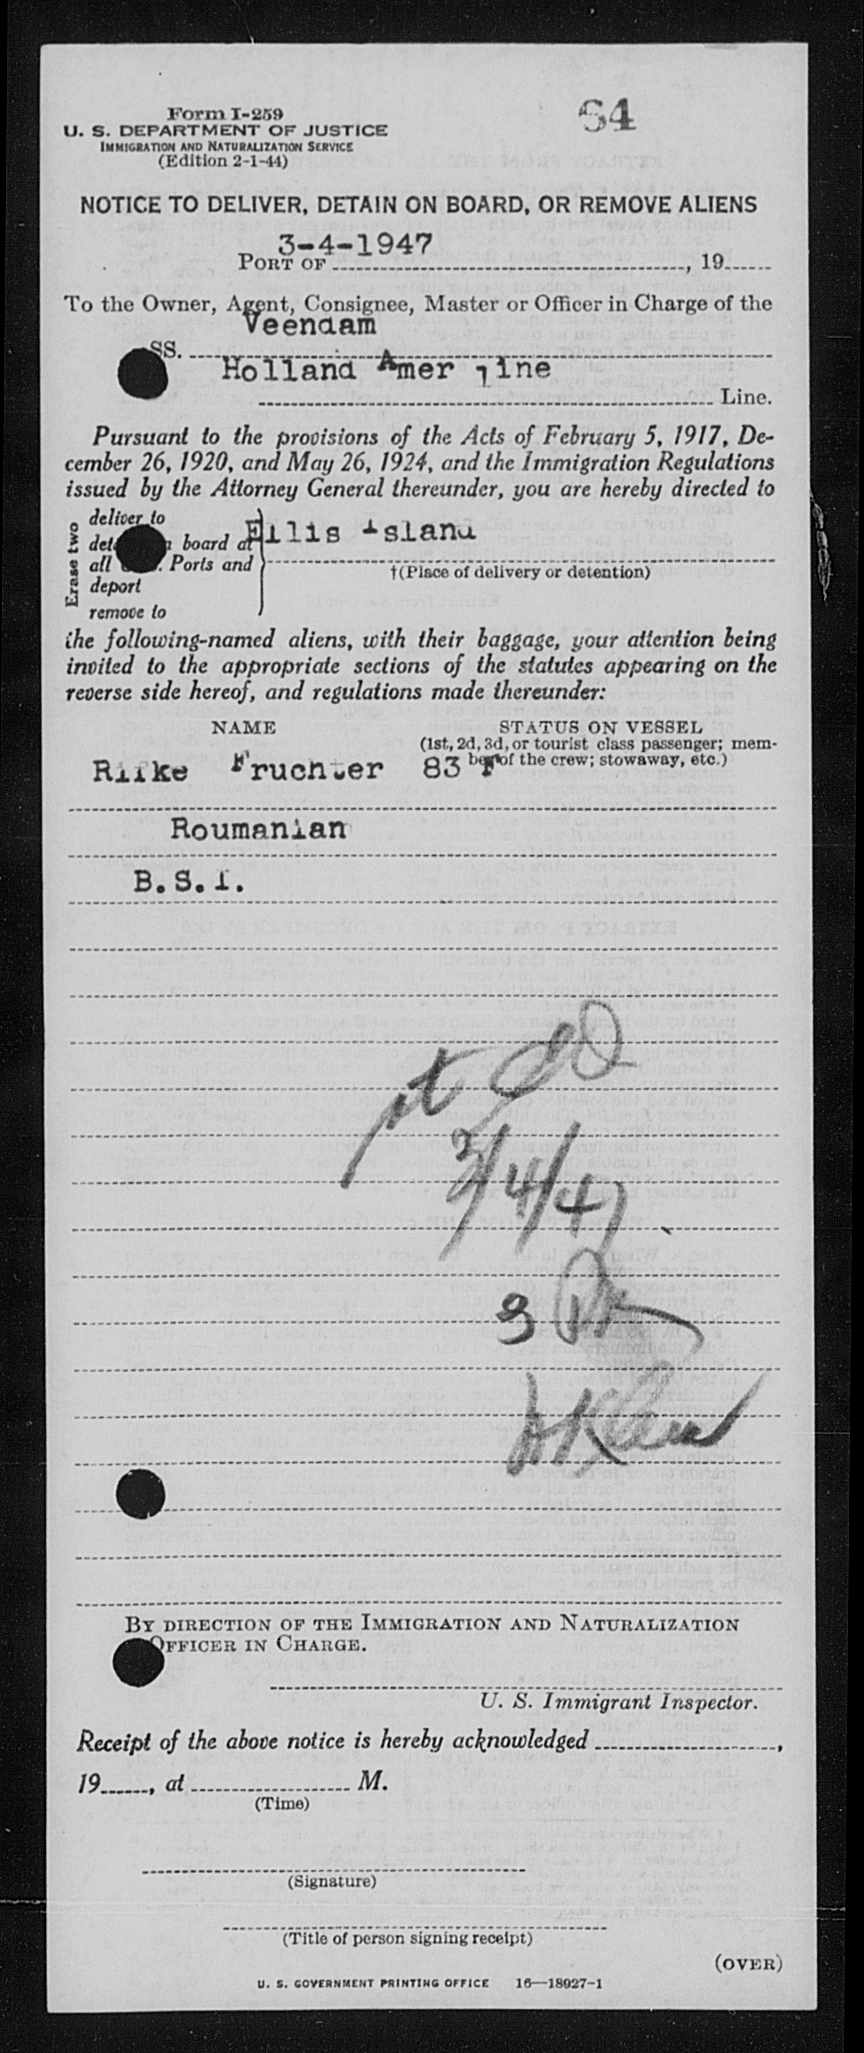 64
Form I-259
U. S. DEPARTMENT OF JUSTICE
IMMIGRATION AND NATURALIZATION SERVICE
(Edition 2-1-44)
NOTICE TO DELIVER, DETAIN ON BOARD, OR REMOVE ALIENS
3-4-1947
PORT OF , 19
To the Owner, Agent, Consignee, Master or Officer in Charge of the
Veendam
SS.
Holland Amer line
Line.
Pursuant to the provisions of the Acts of February 5, 1917, De-
cember 26, 1920, and May 26, 1924, and the Immigration Regulations
issued by the Attorney General thereunder, you are hereby directed to
Erase two
deliver to
board at Ellis Island
all Ports and
†(Place of delivery or detention)
deport
remove to
the following-named aliens, with their baggage, your attention being
invited to the appropriate sections of the statutes appearing on the
reverse side hereof, and regulations made thereunder:
NAME STATUS ON VESSEL
(1st, 2d, 3d, or tourist class passenger; mem-
ber of the crew; stowaway, etc.)
Rifke Fruchter 83 F
Roumanian
B.S.I.
3/4/47
BY DIRECTION OF THE IMMIGRATION AND NATURALIZATION
OFFICER IN CHARGE.
U. S. Immigrant Inspector.
Receipt of the above notice is hereby acknowledged ,
19 , at M.
(Time)
(Signature)
(Title of person signing receipt)
(OVER)
U. S. GOVERNMENT PRINTING OFFICE 16—18027-1